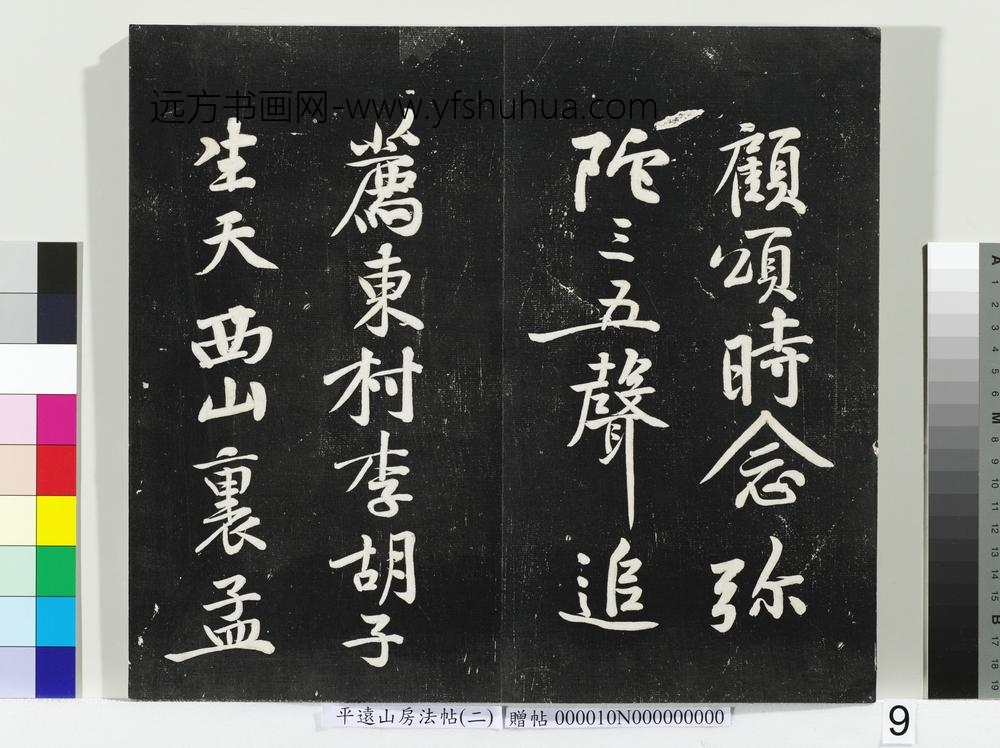 远方书画网-www.yfshuhua.com
顧頌時念弥
陀三五聲追
薦東村李胡子
生天西山裏孟
平遠山房法帖(二)
贈帖 000010N000000000
9
A 1 2 3 4 5 6 M 8 9 10 11 12 13 14 15 B 17 18 19